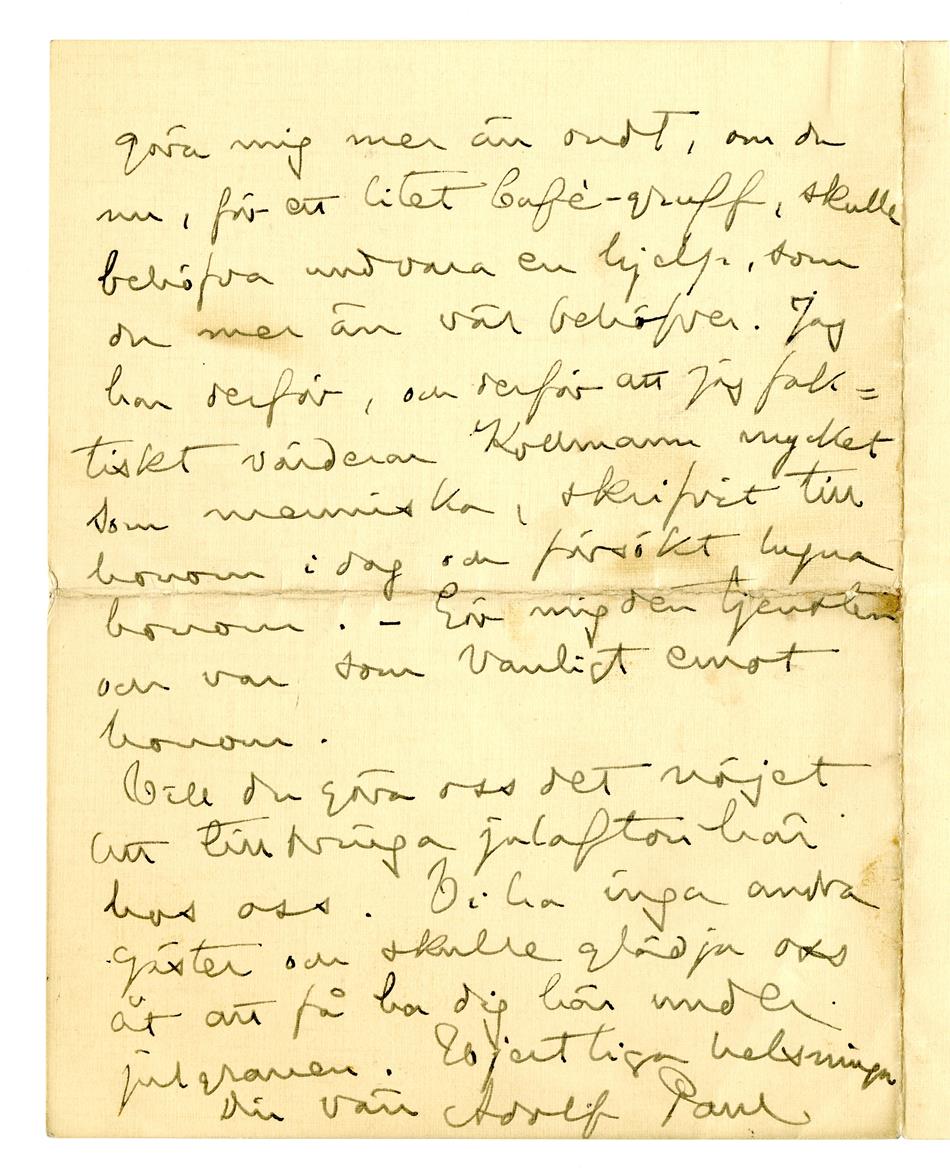 göra mig mer än ondt, om du
nu, för ett litet Café-gruff, skulle
behöfva undvara en hjelp, som
du mer än väl behöfver. Jag
har derför, och derför att jag fak=
tiskt värderar Kollmann mycket
som menniska, skrifvit till
honom i dag och försökt lugna
honom. – Gör mig den tjensten
och var som vanligt emot
honom.
Vill du göra oss det nöjet
att tillbringa julafton här
hos oss. Vi ha inga andra
gäster och skulle glädja oss
åt att få ha dig här under
julgranen. Hjertliga helsninga
Din vän Adolf Paul